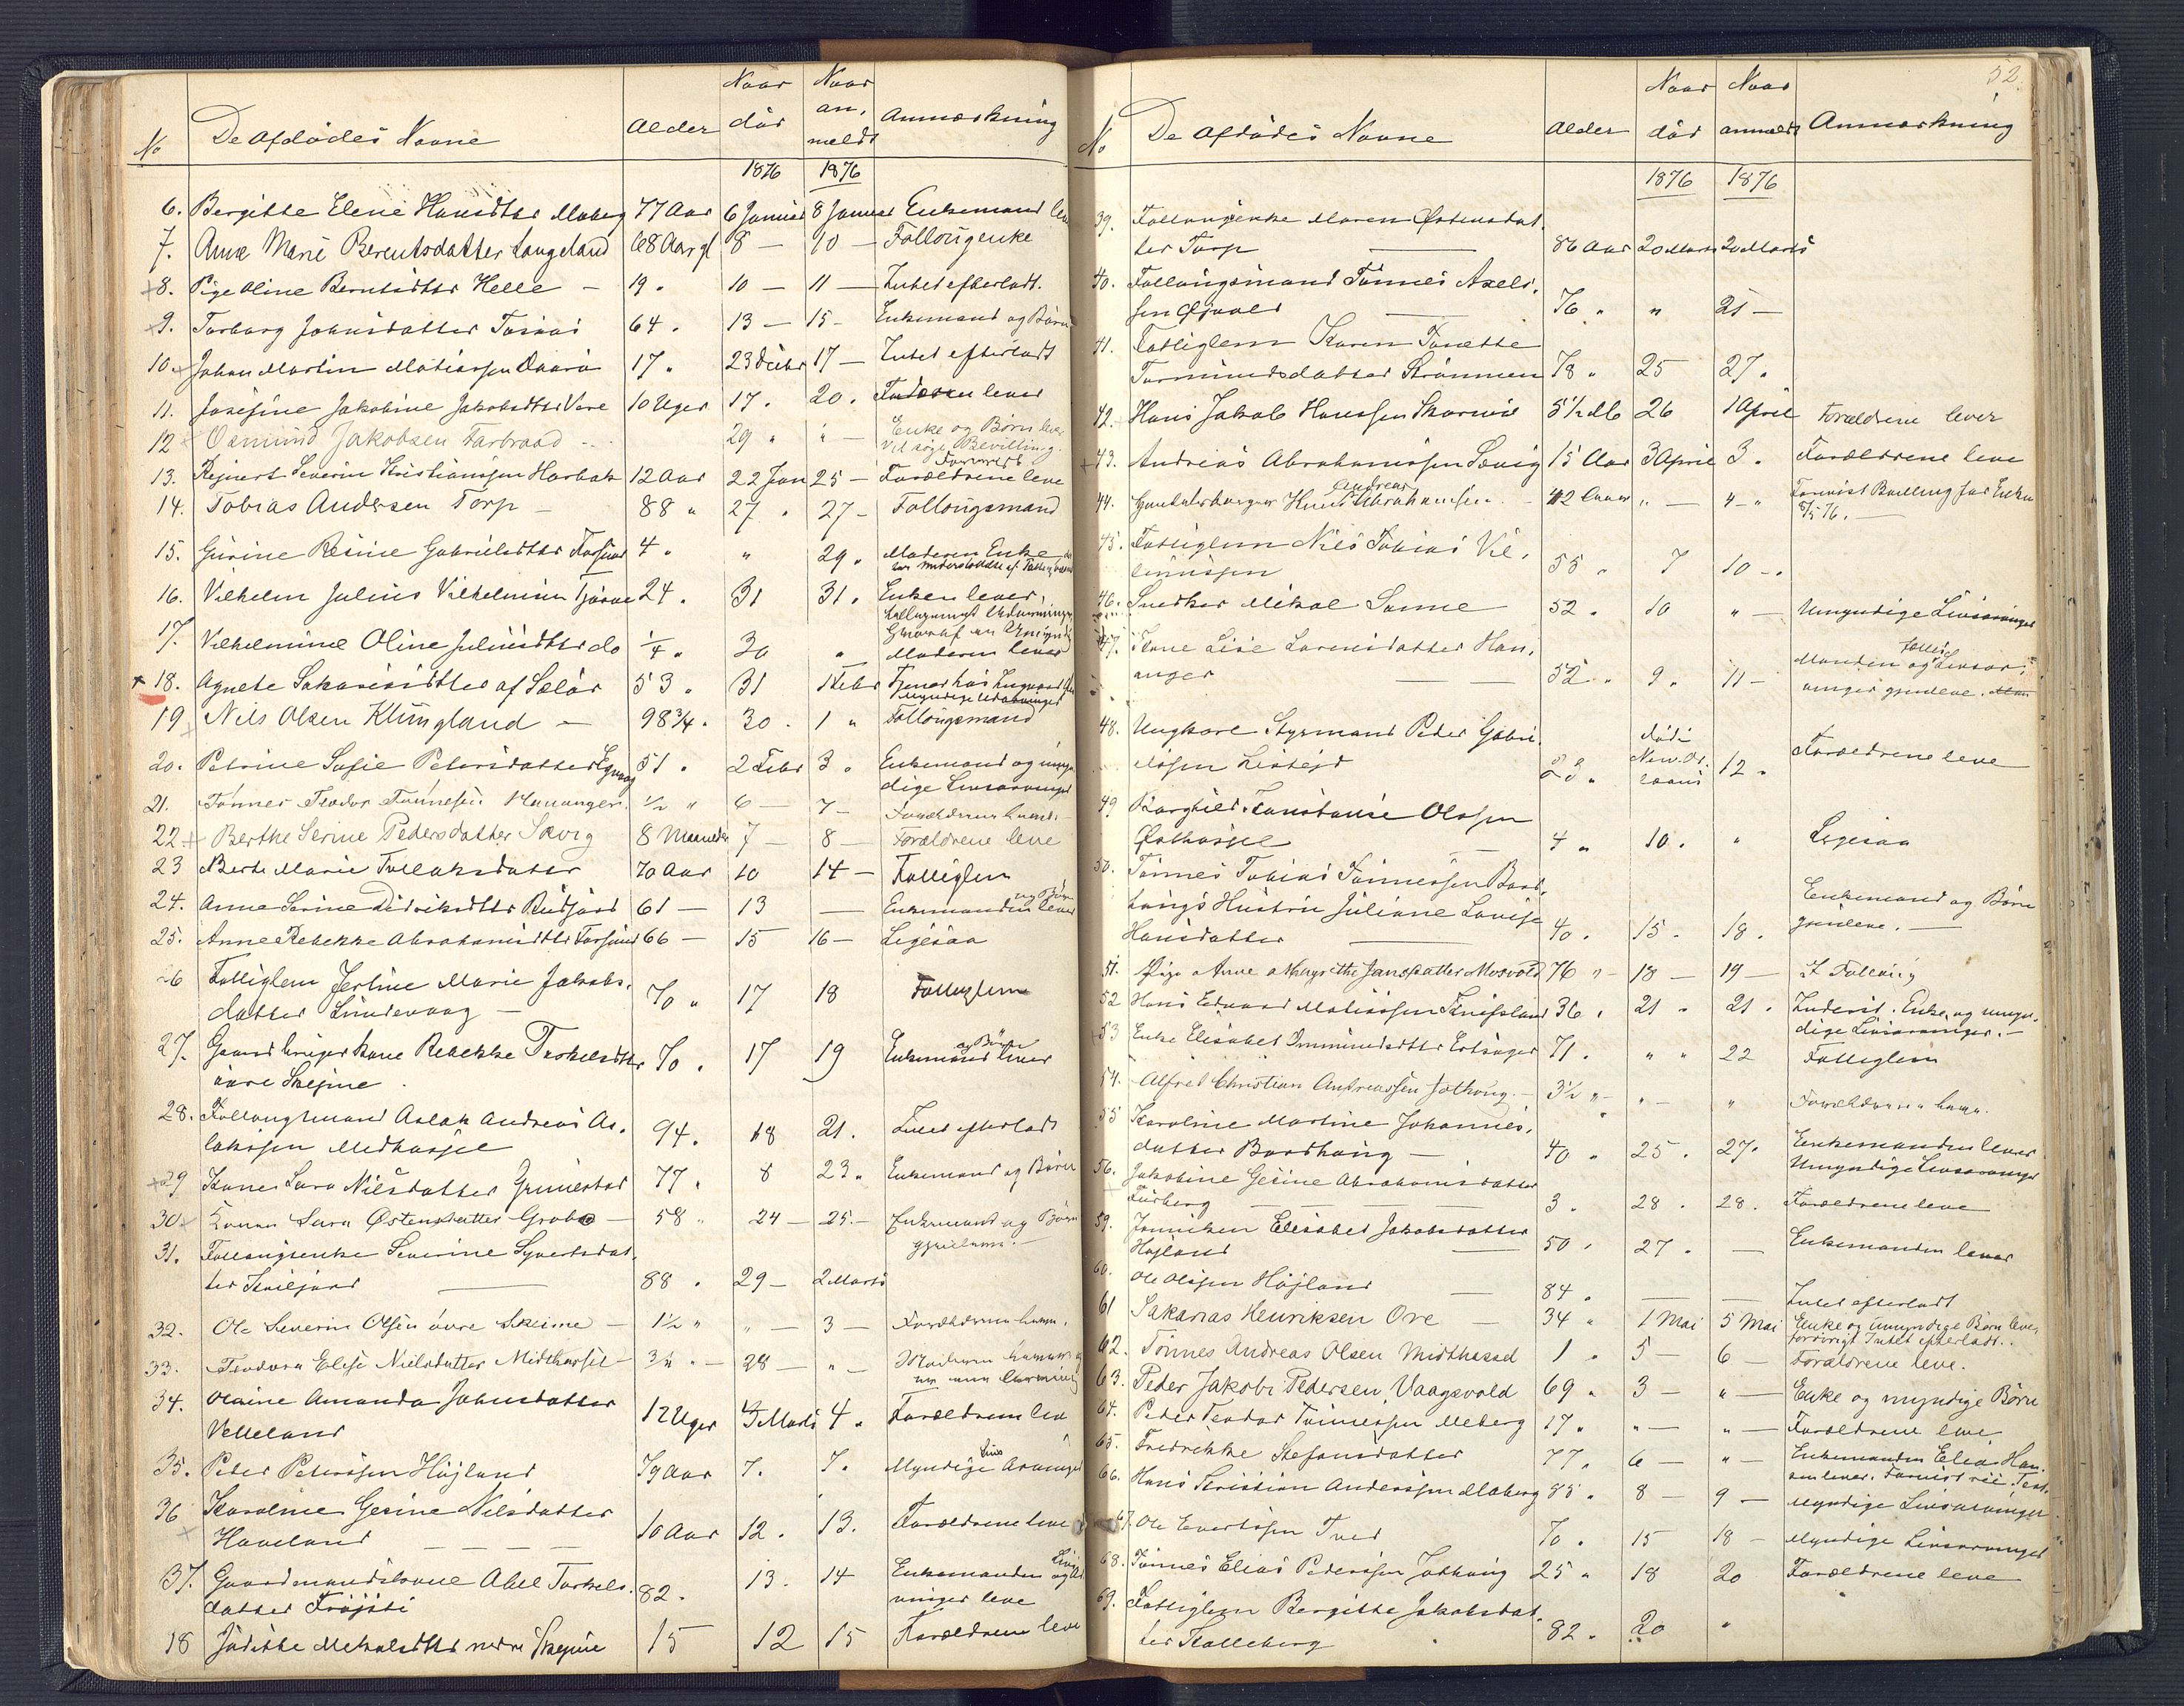 No De Afdødes Navne Alder Naar død Naar anmeldt Anmærkning
1876 1876
6. Bergitte Elene Hansdtter Maberg 77 Aar 6 Januar 8 Januar Enkemand
7. Anne Marie Berentsdatter Langeland 68 Aar gl 8 — 10 — Follougenke
8. Pige Oline Berntsdtter Helle — 19 „ 10 — 11 — Intet efterladt.
9. Torborg Johnsdatter 64 „ 13 — 15 — Enkemand og Børn
10. Johan Martin Matiassen 17 „ 23 Debr 17 — Intet efterladt
11. Josefine Jakobine Jakobsdtter Vere 10 Uger 17. 20. lever
12 Osmund Jakobsen Farbraad 29 „ „ — Enke og Børn lever
Vil søge Bevilling.
13. Rejnert Severin Kristianssen Harbak 12 Aar 22 Jan 25 — Forældrene leve
14. Tobias Andersen Torp — 88 „ 27 „ 27 — Follougsmand
15. Gurine Resine Gabrielsdtter Farsund 4 „ „ 29 „ Moderen Enke
16. Vilhelm Julius Vilhelmsen Tjørve 24 „ 31 31. Enken lever,
17. Vilhelmine Oline Juliusdtter do 1/4 „ 30 „ Moderen lever
18. Agnete Sakariasdtter af Sælør 53 „ 31 1 Febr Tjener hos
myndige Udarvinger
19 Nils Olsen Klungland — 98 3/4 „ 30 . 1 „ Follougsmand
20. Petrine Sofie Petersdatter 51 „ 2 Febr 3 „ Enkemand og umyn-
dige Livsarvinger
21. Tønnes Teodor Tønnesen Hananger 1/2 „ 6 — 7 — Forældrene leve
22 Berthe Serine Pedersdatter Sævig 8 Maaneder 7 — 8 — Forældrene leve
23 Berte Marie Tollaksdatter 70 Aar 10 14 — Fattiglem
24. Anne Serine Didriksdtter Rudjord 61 — 13 — Enkemanden og Børn lever
25. Anne Rebekke Abrahamsdtter Farsund 66 — 15 16 — Ligesaa
26 Fattiglem Jertine Marie Jakobs-
datter Lundevaag — 70 „ 17 18 Fattiglem
27. Gaardbruger kone Rebekke Terkelsdtter
øvre Skejme 70 . 17 19 Enkemand og Børn lever
28. Follougsmand Aslak Andreas As-
laksen Midhassel 94. 18 21. Intet efterladt
29 Kone Sara Nilsdatter Grimestad 77. 8 23 „ Enkemand og Børn
30 Konen Sara Østensdatter — 58 „ 24 — 25. — Enkemand og Børn
31. Follougsenke Severine Syvertsdat-
ter 88 . 29 — 2 Marts
32. Ole Severin Olsen øvre Skeime — 1 1/2 „ „ — 3 — Forældrene leve.
33. Teodora Elise Nielsdatter Midthassel — 3/4 „ — 28 — „ — Moderen
34. Olaine Amanda Johnsdatter
Velleland 12 Uger 3 Marts 4 „ Forældrene leve
35. Peder Peterssen Højland 79 Aar 7. 7. Myndige Livs Arvinger
36 Karoline Gesine Nilsdatter
Haveland — — — 10 Aar 12. 13. Forældrene leve
37. Gaardmandskone Abel Torkels-
datter 82. 13. 14 Enkemanden og Livsar-
vinger leve
18 Juditte Mekalsdtter nedre Skejme 15 12 15 Forældrene leve
52
No De Afdødes Navne Alder Naar død Naar anmeldt Anmærkning
1876 1876
39. Follougsenke Maren Østensdat-
ter Torp — 86 Aar 20 Marts 20 Marts
40. Follougsmand Tønnes Axels-
sen 76 „ „ 21 —
41. Fattiglem Karen Tonette
Tormundsdatter Strømmen 78 „ 25 27 „
42. Hans Jakob Hanssen 5 1/2 Mb 26 1 April Forældrene lever
43. Andreas Abrahamssen Sævig 15 Aar 3 April 3. Forældrene leve
44. Handelsborger Hans Andreas Abrahamsen — 42 Aar „ — 4 — „ Forevist Bevilling for Enken
8/5 76. —
45. Fattiglem Nils Tobias Vil-
lumssen 55 „ 7 10 —
46. Snedker Mikal Sonne 52 „ 10 „ — Umyndige Livsarvinger
47. Kone Lise Larensdatter Han-
anger — — 52 „ 9 „ 11 — Manden og fælles Livsar-
vinger gjenleve.
48. Ungkarl Styrmand Peder Gabri-
elssen Listejd 28 „ døde New Or-
leans 12 „ Forældrene leve
49 Borghild Konstanse Olssen
Østhassel — 4 „ 10. „ Ligesaa
50. Tønnes Tobias Tønnessen Bord-
haugs Hustru Juliane Lovise
Hansdatter — 40. 15. 18. Enkemand og Børn
gjenleve. —
51. Pige Anne Margrethe Jansdatter Mosvold 76 „ — 18 — 19 — I Follaug
52 Hans Eduard Matiassen 36 „ 21 „ 21 „ Enke og umyn-
dige Livsarvinger. —
53 Enke Elisabet Ommundsdtter Ertseger 71. „ „ 22 Fattiglem
54. Alfred Christian Andreassen Jøthoug — 3 1/2 „ — „ — „ Forældrene leve.
55 Karoline Martine Johannes-
datter Bordhaug — 40 „ 25. 27. Enkemanden lever
Umyndige Livsarvinger
56. Jakobine Gesine Abrahamsdatter
Furberg — — 3. 28. 28. Forældrene leve
59. Janniken Elisabet Jakobsdatter
Højland — 50 „ 27. — Enkemanden lever
60. Ole Olssen Højland — 84 „ — — Intet efterladt
61 Sakarias Henriksen Ore — 34 „ 1 Mai 5 Mai Enke og umyndige Børn lever,
forøvrigt Intet efterladt.
62. Tønnes Andreas Olsen Midthassel 1 „ 5 — 6 — Forældrene leve.
63. Peder Jakob Pedersen Vaagsvold 69 „ 3 — „ — Enke og myndige Børn
64. Peder Teodor Tønnessen Meberg 17 „ „ — „ — Forældrene leve
65. Fredrikke Stefansdatter 77. 6 — „ — Enkemanden Elias Han-
sen lever.
66. Hans Kristian Anderssen Maberg 85 „ 8 — 9 — Myndige Livsarvinger
67. Ole Evertssen Tved 70. 15 18 — Myndige Livsarvinger
68. Tønnes Elias Pederssen Jøthaug 25 „ 18 20 Forældrene leve
69. Fattiglem Bergitte Jakobsdat-
ter Kalleberg 82. 20 „